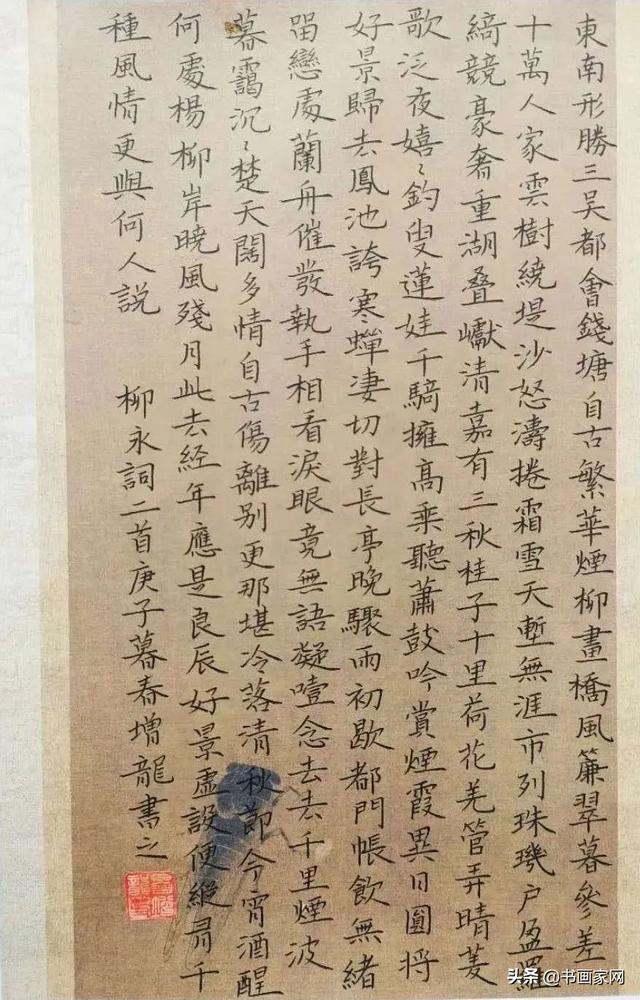 東南形勝三吳都會錢塘自古繁華煙柳畫橋風簾翠暮參差
十萬人家雲樹繞堤沙怒濤捲霜雪天塹無涯市列珠璣户盈羅
綺競豪奢重湖疊巘清嘉有三秋桂子十里荷花羌管弄晴菱
歌泛夜嬉〻釣叟蓮娃千騎擁高乗聽蕭鼓吟賞煙霞異日圖將
好景歸去鳳池誇寒蟬凄切對長亭晚驟雨初歇都門帳飲無緒
留戀處蘭舟催發執手相看淚眼竟無語凝噎念去去千里煙波
暮靄沉〻楚天闊多情自古傷離别更那堪冷落清秋節今宵酒醒
何處楊柳岸曉風殘月此去経年應是良辰好景虛設便縱有千
種風情更與何人説
柳永詞二首庚子暮春增龍書之
头条@书画家网